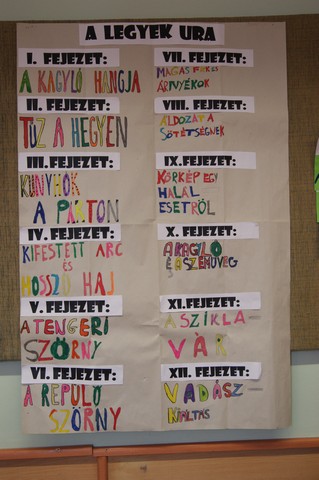 A LEGYEK URA
I. FEJEZET:
A KAGYLÓ HANGJA
II. FEJEZET:
TŰZ A HEGYEN
III. FEJEZET:
KUNYHÓK
A PARTON
IV. FEJEZET:
KIFESTETT ARC
ÉS
HOSSZÚ HAJ
V. FEJEZET:
A TENGERI
SZÖRNY
VI. FEJEZET:
A REPÜLŐ
SZÖRNY
VII. FEJEZET:
MAGAS FÁK ÉS
ÁRNYÉKOK
VIII. FEJEZET:
ÁLDOZAT A
SÖTÉTSÉGNEK
IX. FEJEZET:
KÓRKÉP EGY
HALÁL
ESETRŐL
X. FEJEZET:
A KAGYLÓ
ÉS A SZEMÜVEG
XI. FEJEZET:
A SZIKLA
VÁR
XII. FEJEZET:
VADÁSZ
KIÁLTÁS